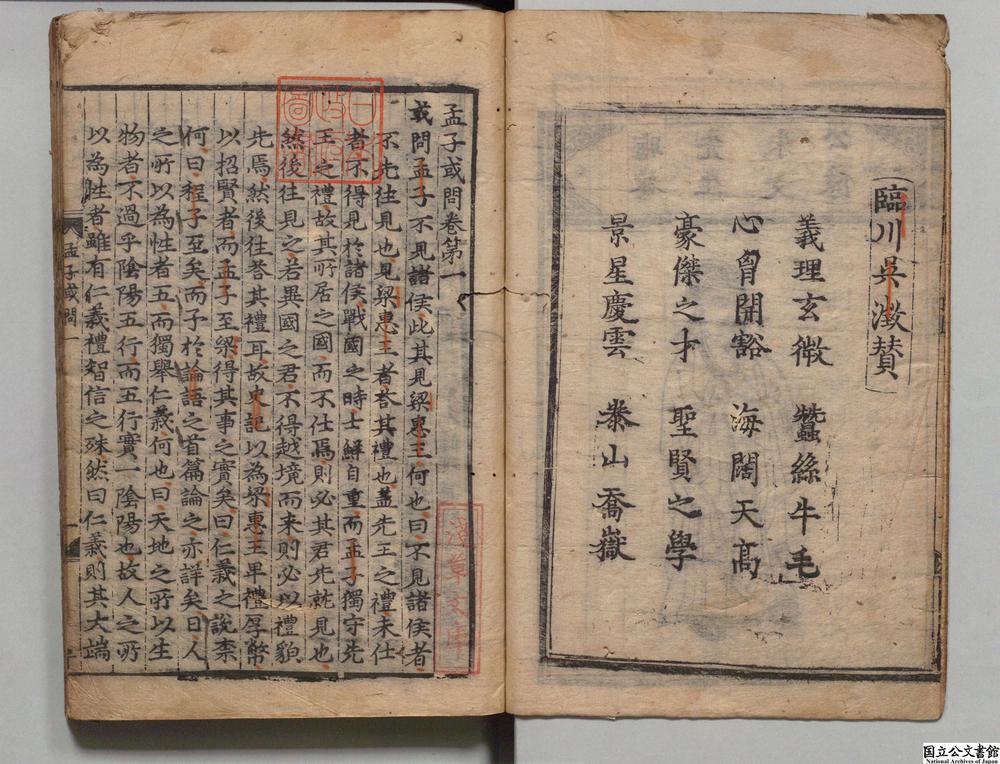 臨川吳澂賛
義理玄微 蠶絲牛毛
心胷開豁 海闊天高
豪傑之才 聖賢之學
景星慶雲 泰山喬嶽
孟子或問卷第一
或問孟子不見諸侯此其見梁惠王何也曰不見諸侯者
不先往見也見梁惠王者荅其禮也盖先王之禮未仕
者不得見於諸侯戰國之時士鮮自重而孟子獨守先
王之禮故其所居之國而不仕焉則必其君先就見也
然後往見之若異國之君不得越境而来則必以禮貌
先焉然後往荅其禮耳故史記以為梁惠王卑禮厚幣
以招賢者而孟子至梁得其事之實矣曰仁義之說柰
何曰程子至矣而子於論語之首篇論之亦詳矣曰人
之所以為性者五而獨舉仁義何也曰天地之所以生
物者不過乎陰陽五行而五行實一陰陽也故人之所
以為性者雖有仁義禮智信之殊然曰仁義則其大端
孟子或問一
淺草文庫
国立公文書館
National Archives of Japan